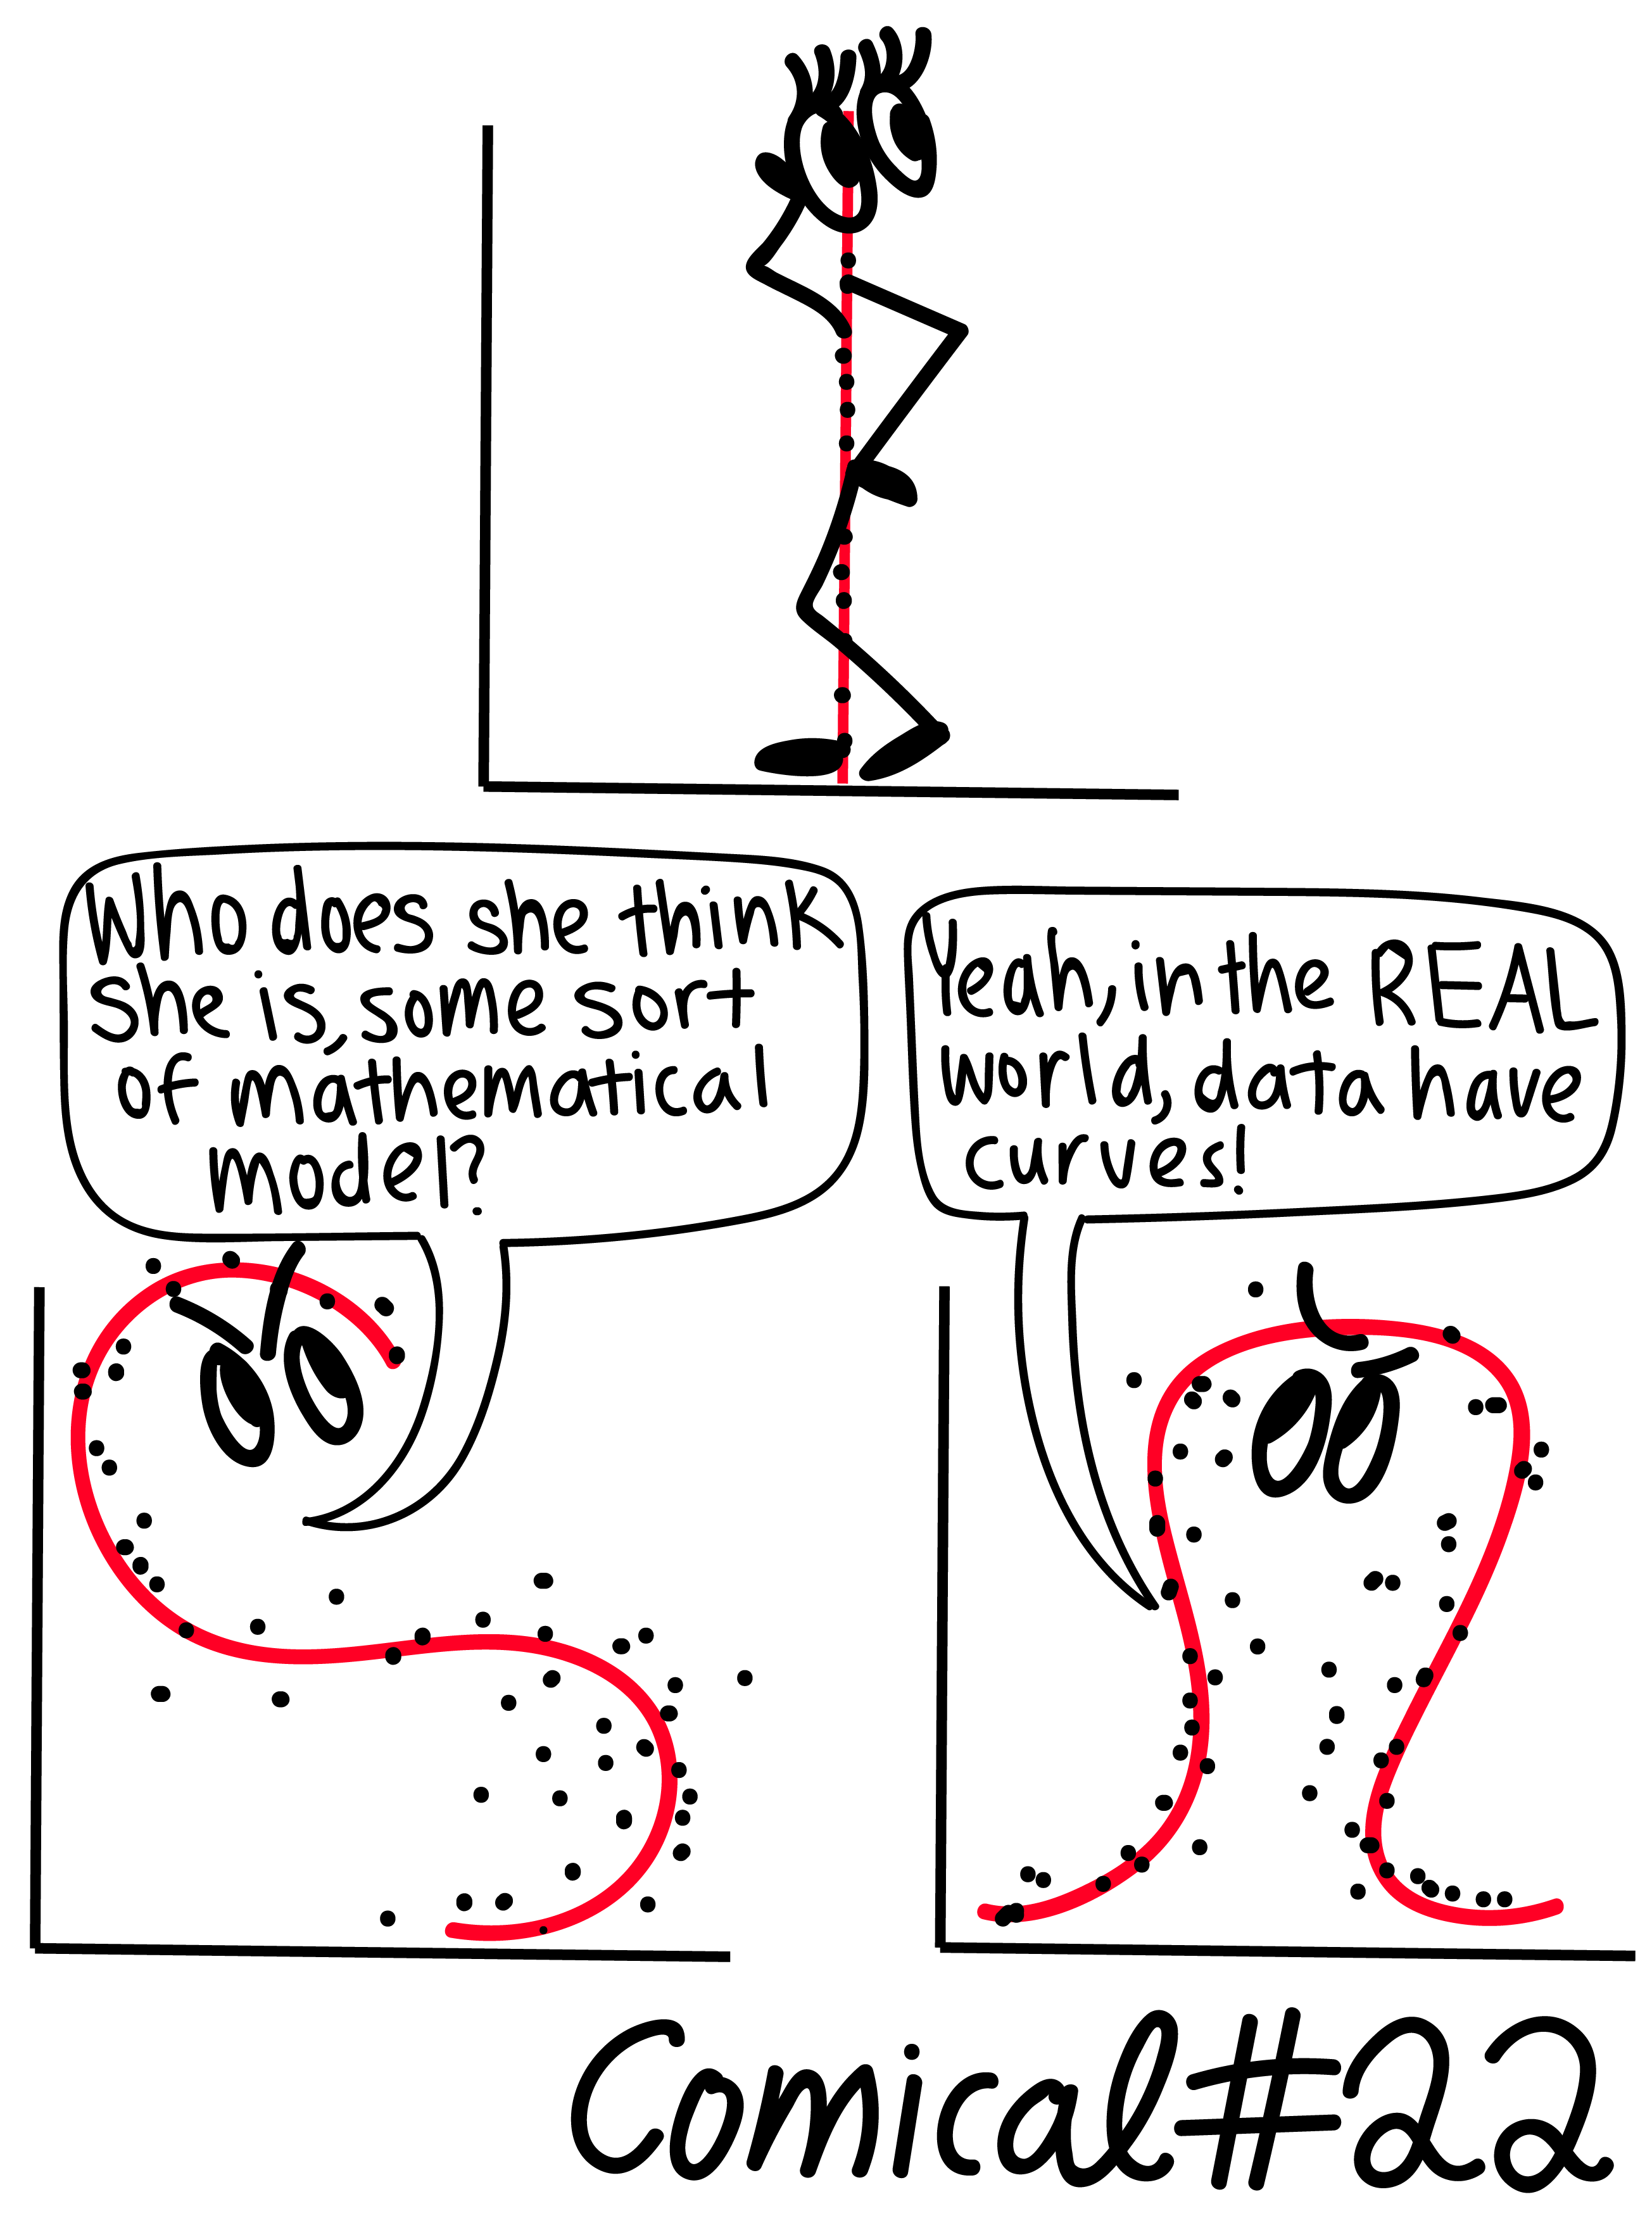 Who does she think
she is, some sort
of mathematical
model?
Yeah, in the REAL
world, data have
curves!
Comical #22